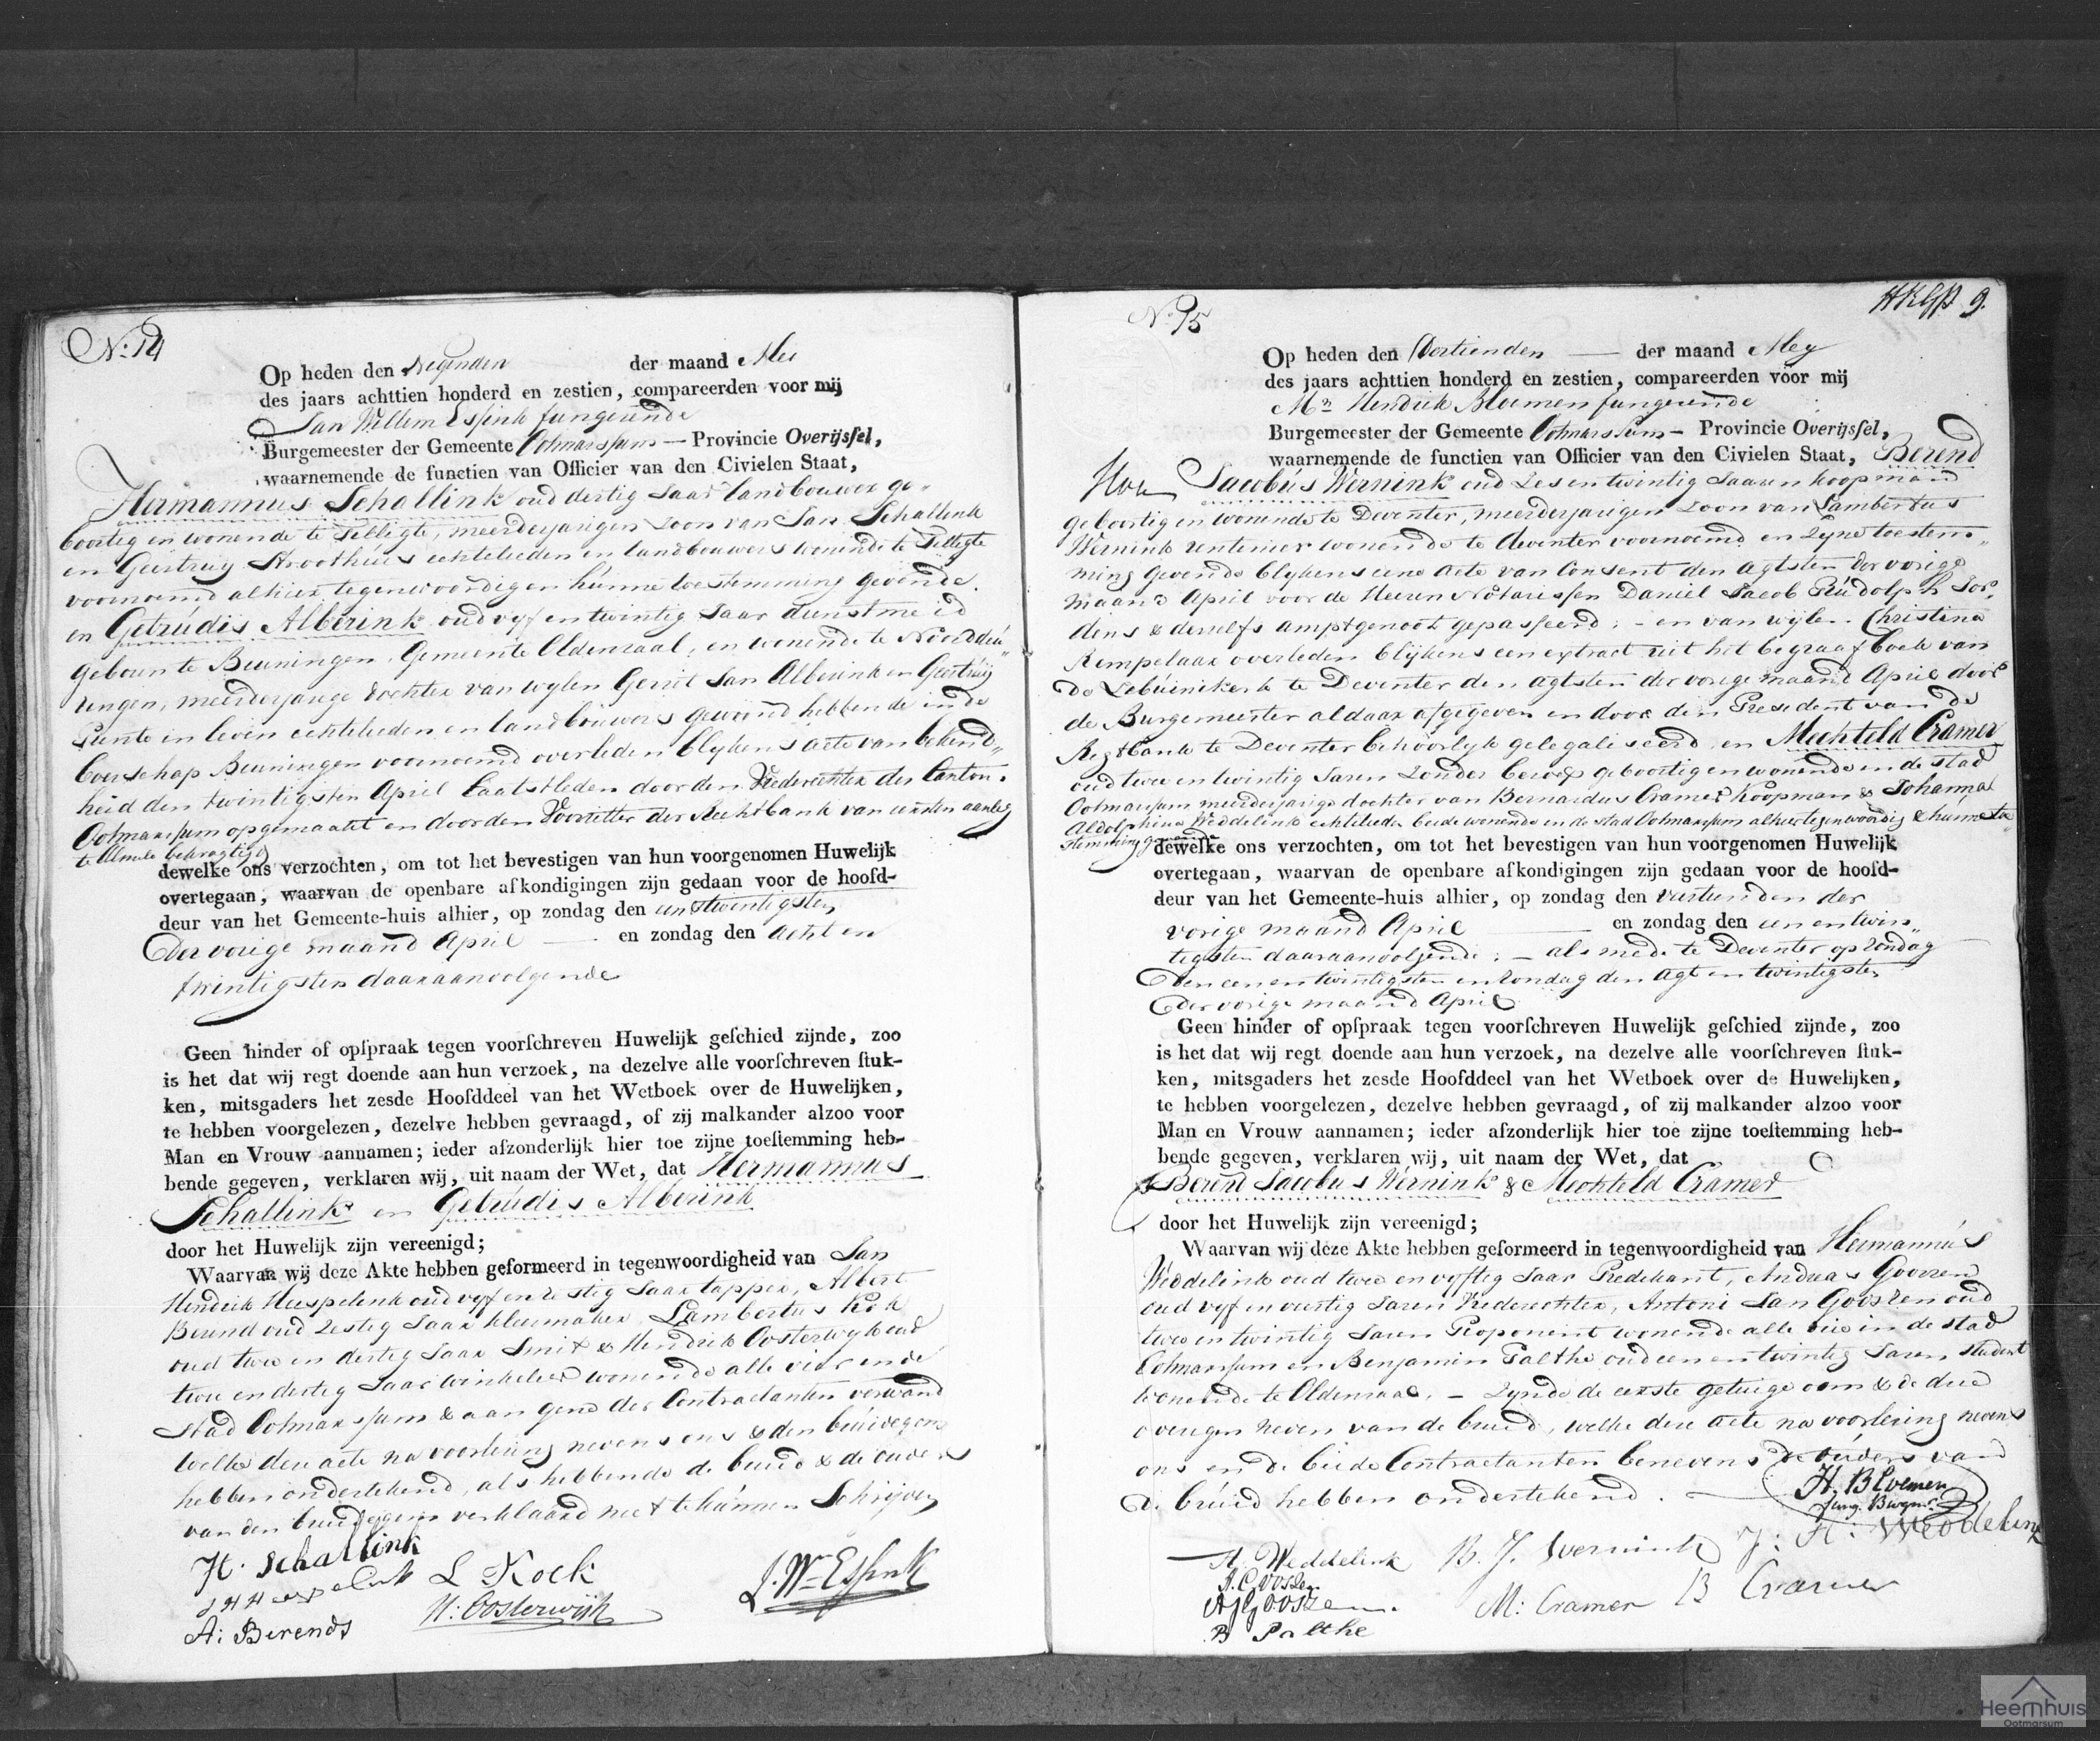 N: 14
Op heden den Negenden der maand Mei
des jaars achttien honderd en zestien, compareerden voor mij
Jan Willem Essink fungerende
Burgemeester der Gemeente Ootmarssum — Provincie Overijsſel,
waarnemende de functien van Officier van den Civielen Staat,
Hermannus Schallink oud dertig Jaar landbouwer ge-
boortig en wonende te Tilligte, meerderjarigen zoon van Jan Schallink
en Geertruij echtelieden en landbouwers wonende te Tilligte
voornoemd alhier tegenwoordig en hunne toestemming gevende
en Getrudis Alberink oud vyf en twintig Jaar dienstmeid
geboren te Beuningen, Gemeente Oldenzaal, en wonende te Noorddeu-
ringen, meerderjarige dochter van wylen Gerrit Jan Alberink en Geertruij
Punte in leven echtelieden en landbouwers gewoond hebbende in de
boerschap Beuningen voornoemd overleden blykens acte van bekend-
heid den twintigsten April laatstleden door den Vrederechter des Canton
Ootmarssum opgemaakt en door den Voorzitter der Rechtbank van eersten aanleg
te Almelo bekragtigd
dewelke ons verzochten, om tot het bevestigen van hun voorgenomen Huwelijk
overtegaan, waarvan de openbare afkondigingen zijn gedaan voor de hoofd-
deur van het Gemeente-huis alhier, op zondag den een & twintigsten
der vorige maand April — en zondag den acht en
twintigsten daaraanvolgende
Geen hinder of opſpraak tegen voorſchreven Huwelijk geſchied zijnde, zoo
is het dat wij regt doende aan hun verzoek, na dezelve alle voorſchreven ſtuk-
ken, mitsgaders het zesde Hoofddeel van het Wetboek over de Huwelijken,
te hebben voorgelezen, dezelve hebben gevraagd, of zij malkander alzoo voor
Man en Vrouw aannamen; ieder afzonderlijk hier toe zijne toeſtemming heb-
bende gegeven, verklaren wij, uit naam der Wet, dat Hermannus
Schallink en Getrudis Alberink
door het Huwelijk zijn vereenigd;
Waarvan wij deze Akte hebben geformeerd in tegenwoordigheid van Jan
Hendrik Heespelink oud vyf en zestig Jaar tapper, Albert
Berend oud zestig Jaar kleermaker, Lambertus Kok
oud twee en dertig Jaar Smit & Hendrik Oosterwyk oud
twee en dertig Jaar winkelier wonende alle vier in de
stad Ootmarssum & aan gene der Contractanten verwand
welke deze acte na voorlezing nevens ons & den bruidegom
hebben ondertekend, als hebbende de bruid & de ouders
van den bruidegom verklaard niet te kunnen Schrijven
H: Schallink
L Kock
J. Wm Essink
H: Oosterwijk
A: Berends
HKGP 9.
N. 15
Op heden den Dertienden — der maand Mey
des jaars achttien honderd en zestien, compareerden voor mij
Mr Hendrik Bloemen fungerende
Burgemeester der Gemeente Ootmarssum — Provincie Overijsſel,
waarnemende de functien van Officier van den Civielen Staat, Berend
Jacobus Wernink oud zes en twintig Jaaren koopman
geboortig en wonende te Deventer, meerderjarigen zoon van Lambertus
Wernink rentenier wonende te Deventer voornoemd en zyne toestem-
ming gevende blykens eene acte van Consent den agtsten der vorige
maand April voor de Heeren Notarissen Daniel Jacob Rudolph Jor-
dens & deszelfs amptgenoot gepasseerd; — en van wylen Christina
Rempelaar overleden blykens een extract uit het begraafboek van
de Lebuinikerk te Deventer den agtsten der vorige maand April door
de Burgemeester aldaar afgegeven en door den President van de
Regtbank te Deventer behoorlyk gelegaliseerd en Mechteld Cramer
oud twee en twintig Jaren zonder beroep geboortig en wonende in de stad
Ootmarssum meerderjarige dochter van Bernardus Cramer Koopman & Johanna
Aldolphina Weddelink echtelieden beide wonende in de stad Ootmarssum alhier tegenwoordig & hunne toe-
stemming gevende
dewelke ons verzochten, om tot het bevestigen van hun voorgenomen Huwelijk
overtegaan, waarvan de openbare afkondigingen zijn gedaan voor de hoofd-
deur van het Gemeente-huis alhier, op zondag den veertienden der
vorige maand April — en zondag den een en twin-
tigsten daaraanvolgende; — als mede te Deventer op zondag
den een en twintigsten en zondag den agt en twintigsten
der vorige maand April
Geen hinder of opſpraak tegen voorſchreven Huwelijk geſchied zijnde, zoo
is het dat wij regt doende aan hun verzoek, na dezelve alle voorſchreven ſtuk-
ken, mitsgaders het zesde Hoofddeel van het Wetboek over de Huwelijken,
te hebben voorgelezen, dezelve hebben gevraagd, of zij malkander alzoo voor
Man en Vrouw aannamen; ieder afzonderlijk hier toe zijne toeſtemming heb-
bende gegeven, verklaren wij, uit naam der Wet, dat
Berend Jacobus Wernink & Mechteld Cramer
door het Huwelijk zijn vereenigd;
Waarvan wij deze Akte hebben geformeerd in tegenwoordigheid van Hermannus
Weddelink oud twee en vyftig Jaar Predikant, Andreas Goossen
oud vyf en veertig Jaren Vrederechter, Antoni Jan Goossen oud
twee en twintig Jaren Proponent wonende alle drie in de stad
Ootmarssum en Benjamin Palthe oud een en twintig Jaren student
wonende te Oldenzaal, — zynde de eerste getuige oom & de drie
overigen neven van de bruid, welke deze acte na voorlezing nevens
ons en de beide Contractanten benevens de ouders van
de bruid hebben ondertekend.
H. Bloemen
fung. Burgmr.
H. Weddelink
B. J. Wernink
J: A: Weddelink
A. Goossen
A J Goossen
M: Cramer
B Cramer
B Palthe
Heemhuis
Ootmarsum